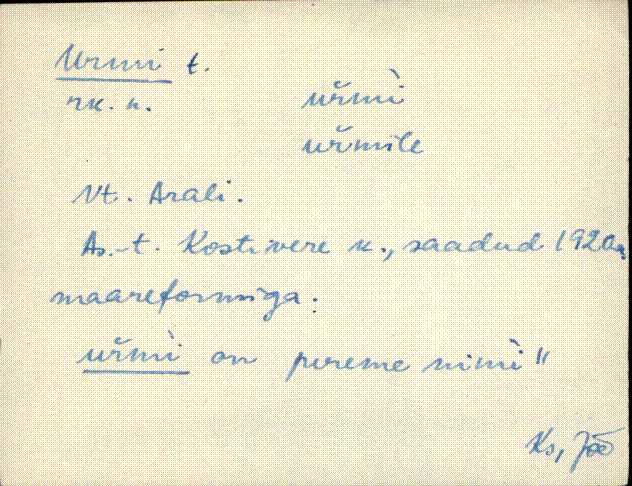 Urmi t.
rk. n. uřmì
uřmile
Vt. Arali.
As.-t. Kostivere k., saadud 1920.a.
maareformiga:
uřmì on pereme nimì"
Ks, Jõe